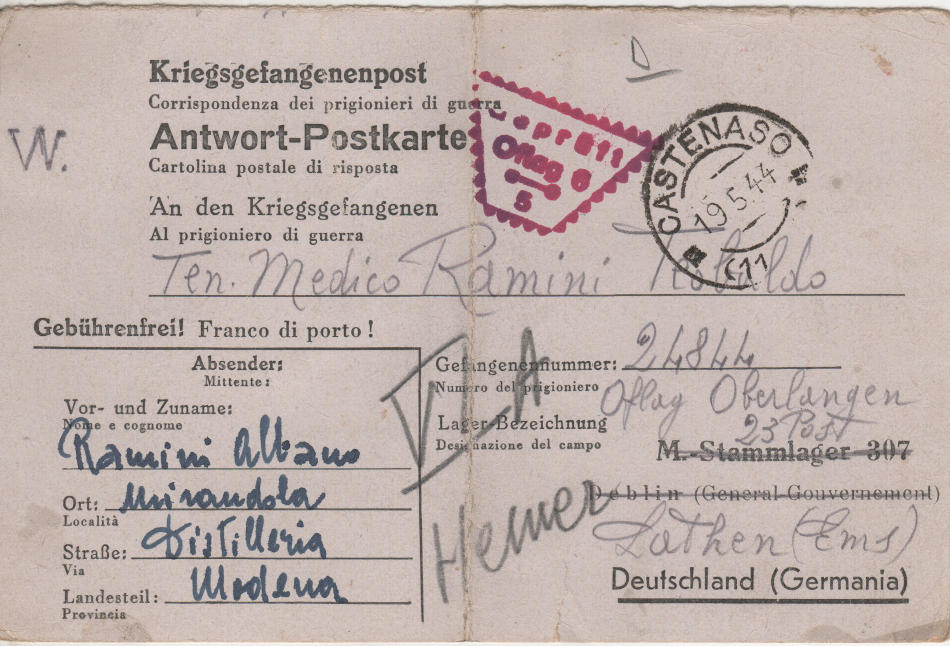 Kriegsgefangenenpost
Corrispondenza dei prigionieri di guerra
Antwort-Postkarte
Cartolina postale di risposta
W.
Geprüft
Oflag 6
5
CASTENASO
19.5.44
An den Kriegsgefangenen
Al prigioniero di guerra
Ten. Medico Ramini
Gebührenfrei! Franco di porto!
Absender:
Mittente:
Vor- und Zuname:
Nome e cognome
Ramini Albano
Ort: Mirandola
Località
Straße: Distilleria
Via
Landesteil: Modena
Provincia
VI-A
Hemer
Gefangenennummer: 24844
Numero del prigioniero
Oflag Oberlangen
Lager-Bezeichnung
Designazione del campo
23 Post
M.-Stammlager 307
Deblin (General-Gouvernement)
Lathen (Ems)
Deutschland (Germania)